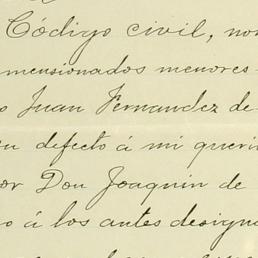 Código civil, no
mensionados menores
Juan Fernandez de
defecto á mi queri
or Don Joaquin de
o á los antes designa